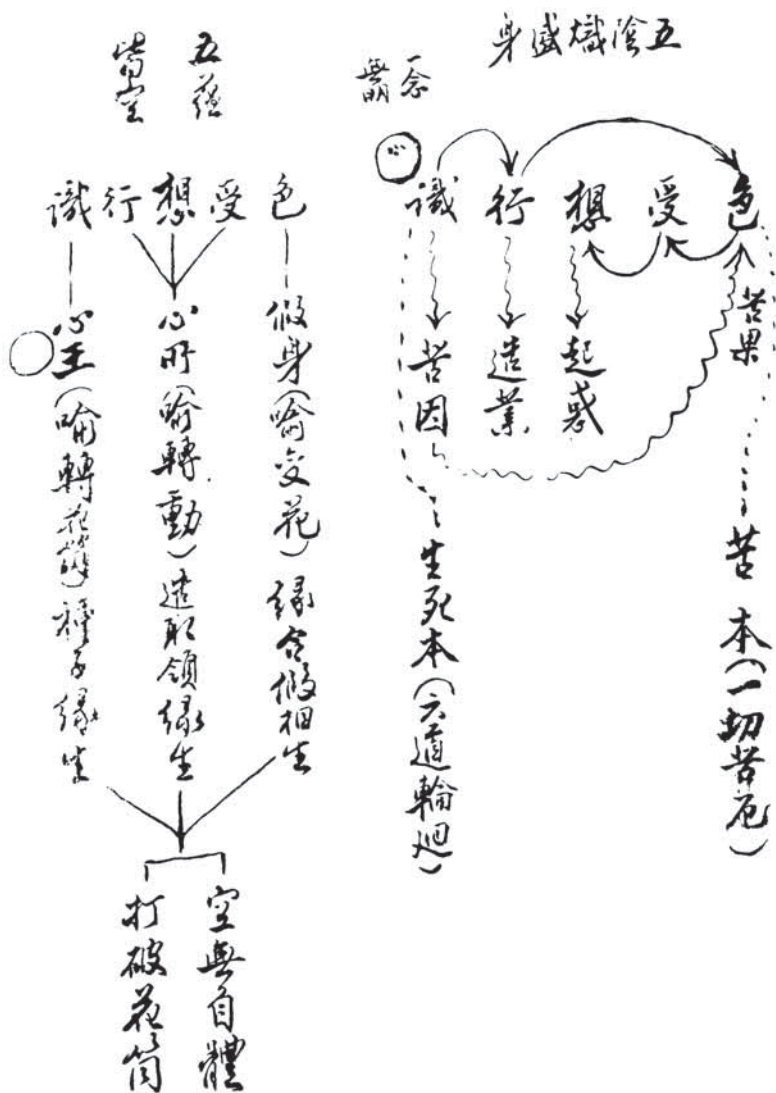 五陰熾盛身
一念
無明
心
色受想行識
苦果
起惑
造業
苦因
苦本(一切苦厄)
生死本(六道輪迴)
五蘊
皆空
色受想行識
假身(喻變花)緣合假相生
心所(喻轉動)造取領緣生
心王(喻轉花筒)種子緣生
空無自體
打破花筒